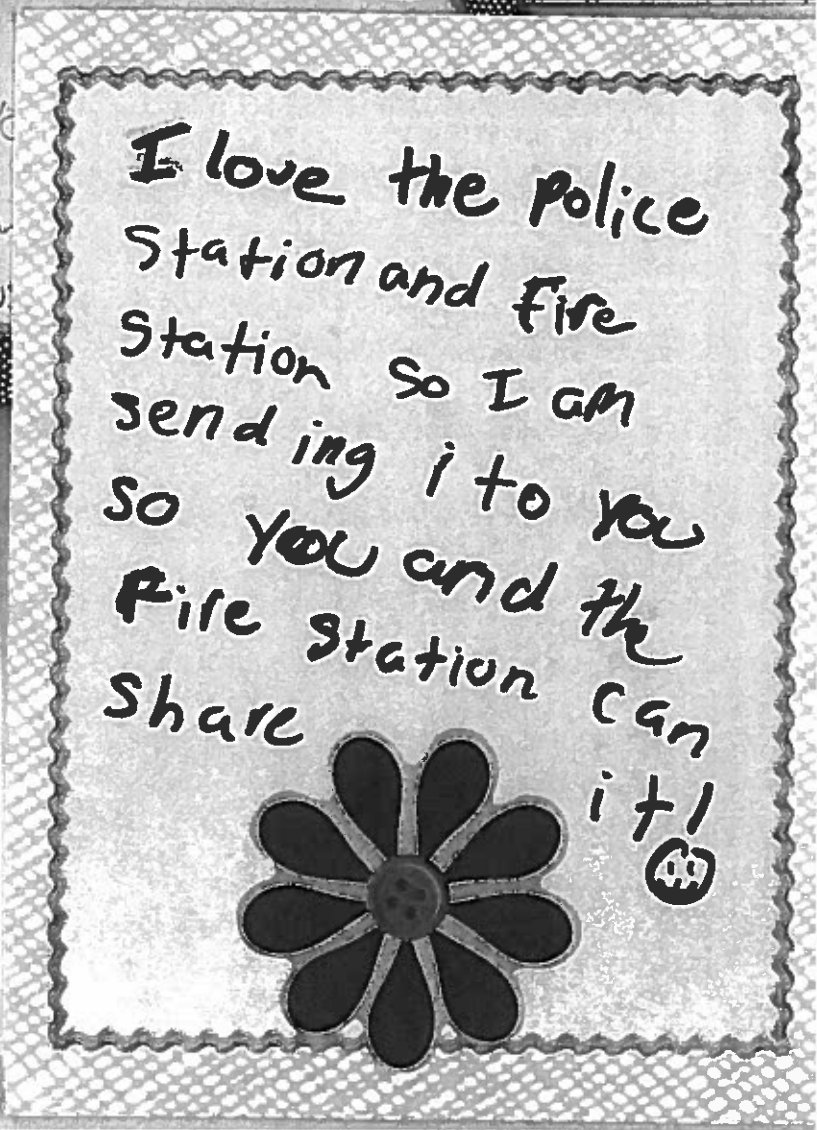 I love the police
Station and Fire
Station so I am
sending i to you
so you and the
Fire station can
share
it!